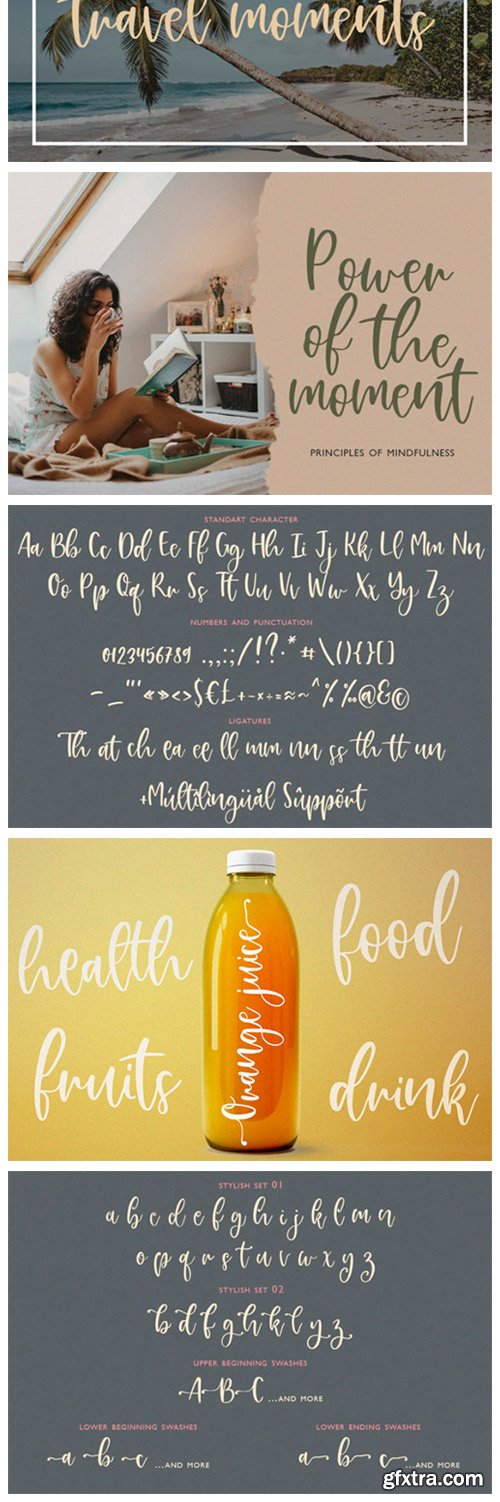 travel moments
Power
of the
moment
PRINCIPLES OF MINDFULNESS
STANDART CHARACTER
Aa Bb Cc Dd Ee Ff Gg Hh Ii Jj Kk Ll Mm Nn
Oo Pp Qq Rr Ss Tt Uu Vv Ww Xx Yy Zz
NUMBERS AND PUNCTUATION
0123456789 .,,:;/!?.*#\(){}[]
-_"'«»<>$€£+-×÷=≈~^%‰@&©
LIGATURES
Th at ch ea ee ll mm nn ss th tt un
+Múltîlingüål Sûppõrt
health
food
Orange juice
fruits
drink
STYLISH SET 01
a b c d e f g h i j k l m n
o p q r s t u v w x y z
STYLISH SET 02
b d f g h k l y z
UPPER BEGINNING SWASHES
A B C ...AND MORE
LOWER BEGINNING SWASHES
LOWER ENDING SWASHES
a b c ...AND MORE
a b c ...AND MORE
gfxtra.com